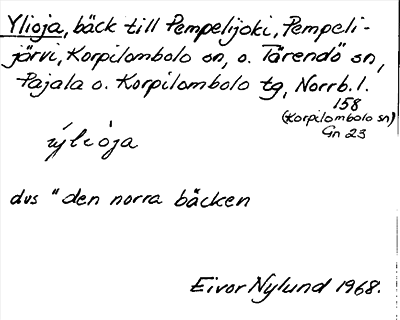 Ylioja, bäck till Pempelijoki, Pempeli-
järvi, Korpilombolo sn, o. Tärendö sn,
Pajala o. Korpilombolo tg, Norrb. l.
158
(Korpilombolo sn)
Gn 23
ýliòja
dvs "den norra bäcken
Eivor Nylund 1968.